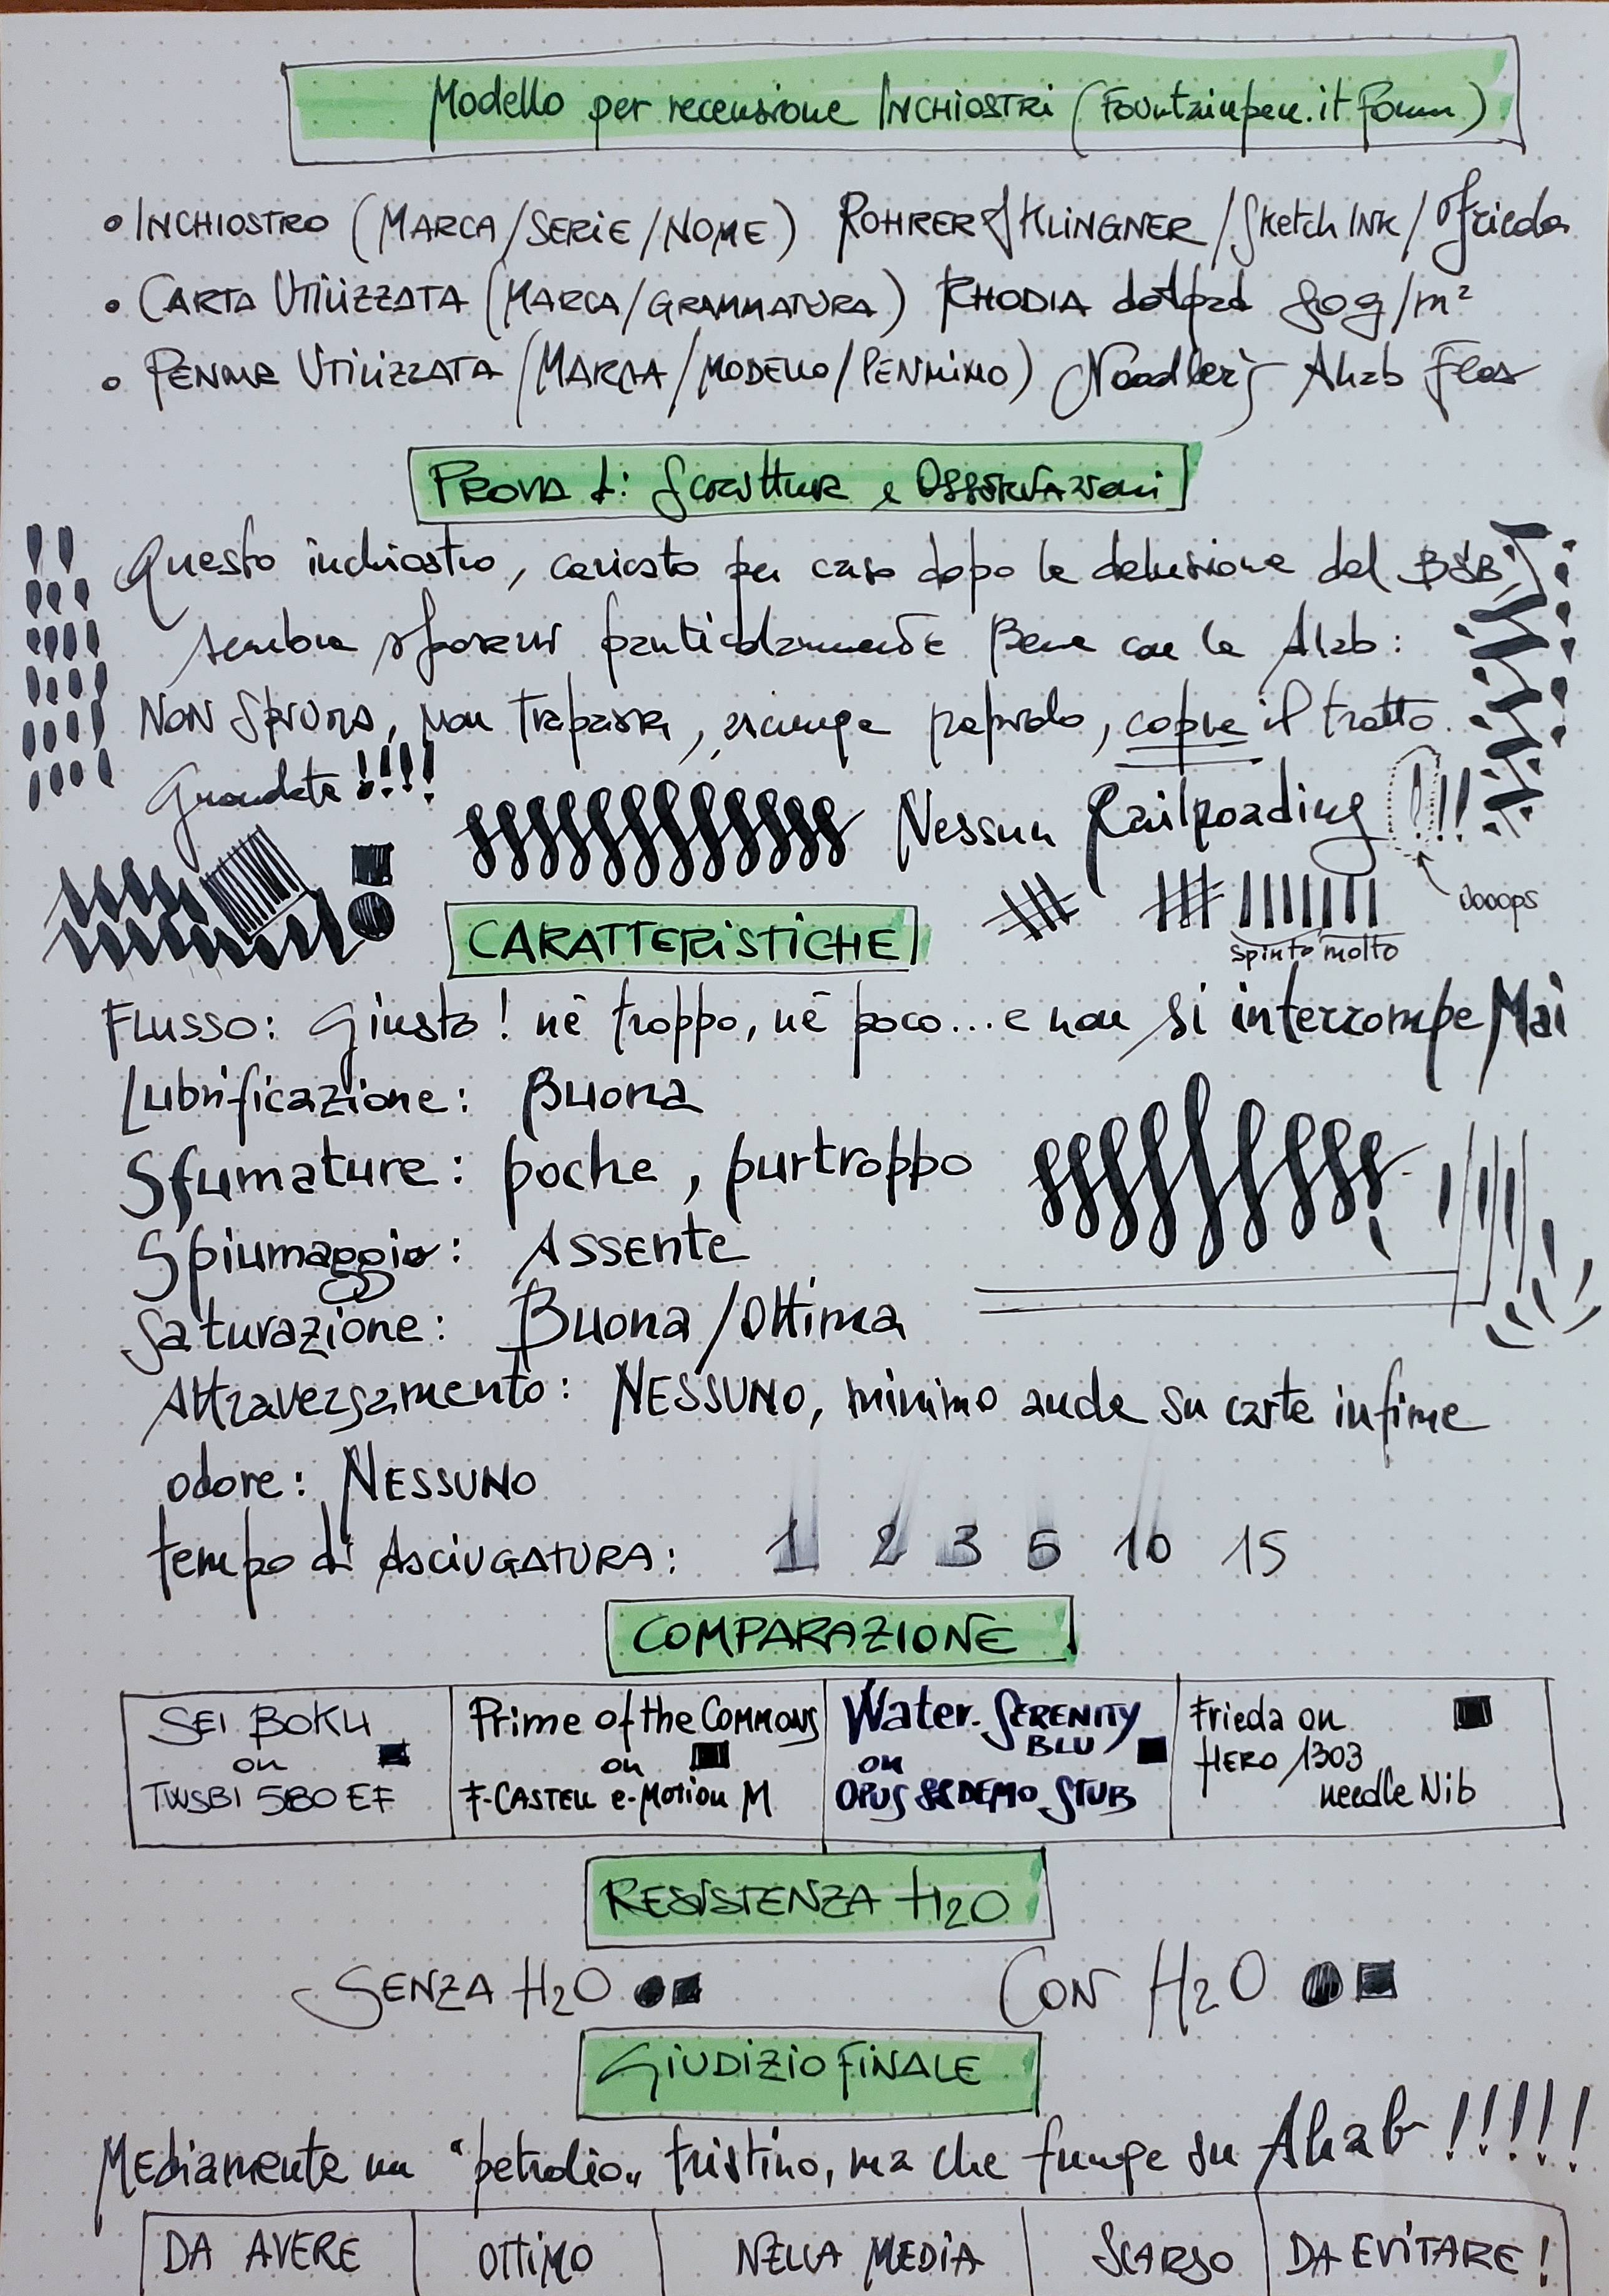 Modello per recensione INCHIOSTRi (Fountainpen.it Forum)
INCHIOSTRO (MARCA/SERiE/NOME) ROHRER & KLiNGNER/Sketch INK/Frieda
CARTA UTiLiZZATA (MARCA/GRAMMATURA) RHODIA dotpad 80g/m²
PENNA UTiLiZZATA (MARCA/MODELLO/PENNiNO) Noodler's Ahab Flex
PROVA di Scrittura e OSSERVAZioni
Questo inchiostro, caricato per caso dopo la delusione del BSB,
sembra sposarsi particolarmente Bene con la Ahab:
NON Spiuma, non trapassa, asciuga rapido, copre il tratto.
Grandate !!!!
Nessun Railroading !!!
ooops
spinto molto
CARATTERiSTiCHE
FLUSSO: Giusto! nè troppo, nè poco... e non si interrompe Mai
Lubrificazione: Buona
Sfumature: poche, purtroppo
Spiumaggio: ASSENTE
Saturazione: Buona/Ottima
Attraversamento: NESSUNO, minimo anche su carte infime
odore: NESSUNO
tempo di ASCiUGATURA: 1 2 3 5 10 15
COMPARAZIONE
SEI BOKU on TWSBI 580 EF
Prime of the COMMONS on F-CASTELL e-Motion M
Water. SERENITY BLU on OPUS 88 DEMO STUB
Frieda on HERO 1303 needle Nib
RESiSTENZA H2O
SENZA H2O CON H2O
GiUDiZiO FiNALE
MEdiamente un "petrolio" tristino, ma che funge su Ahab !!!!!
DA AVERE OTTiMO NELLA MEDiA SCARSO DA EViTARE!